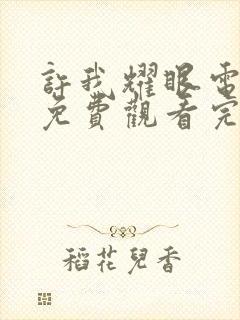 許我耀眼電
免費觀看完
稻花兒香